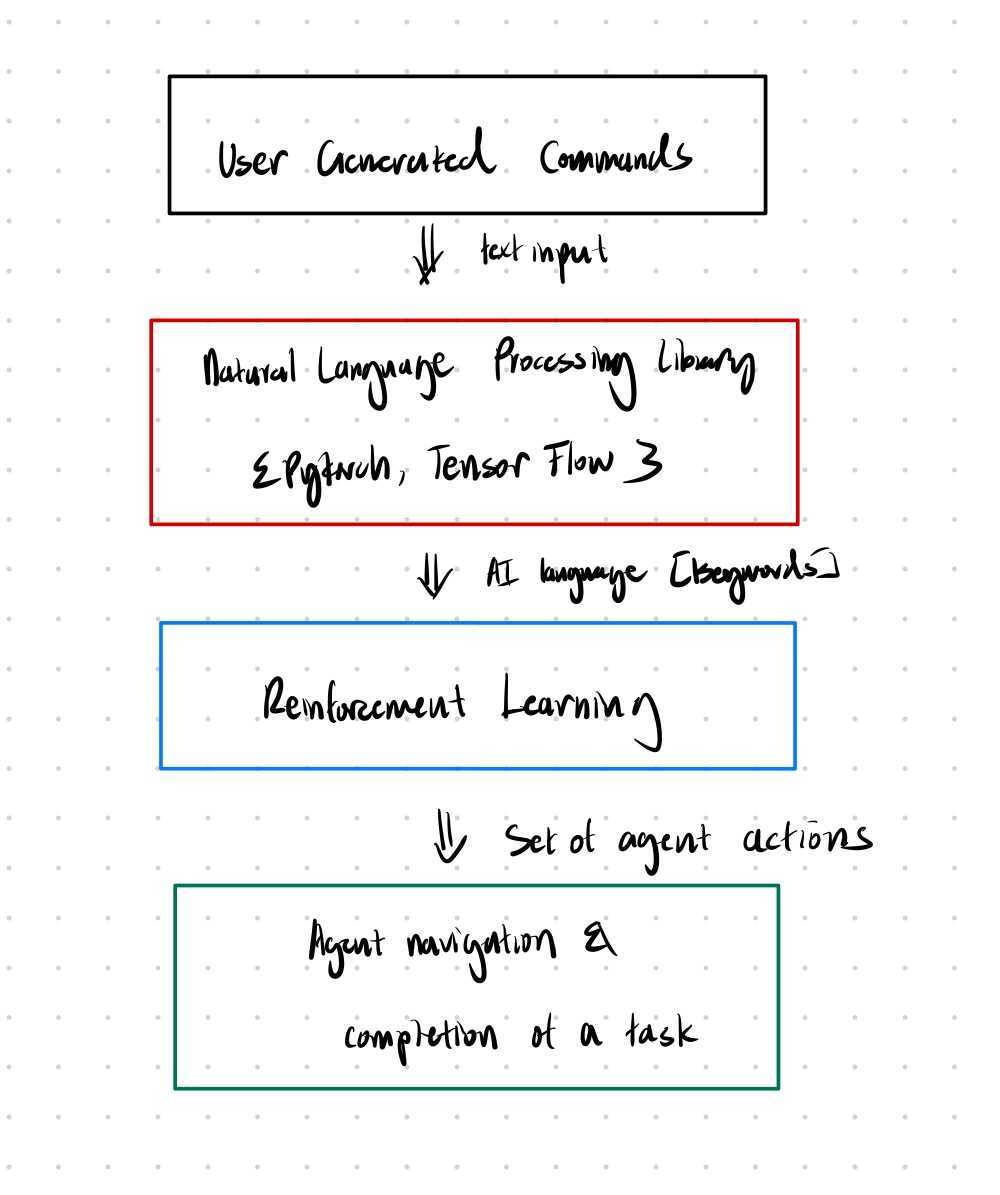 User Generated Commands
text input
Natural Language Processing Library
{Pytorch, Tensor Flow }
AI language [Keywords]
Reinforcement Learning
Set of agent actions
Agent navigation &
completion of a task